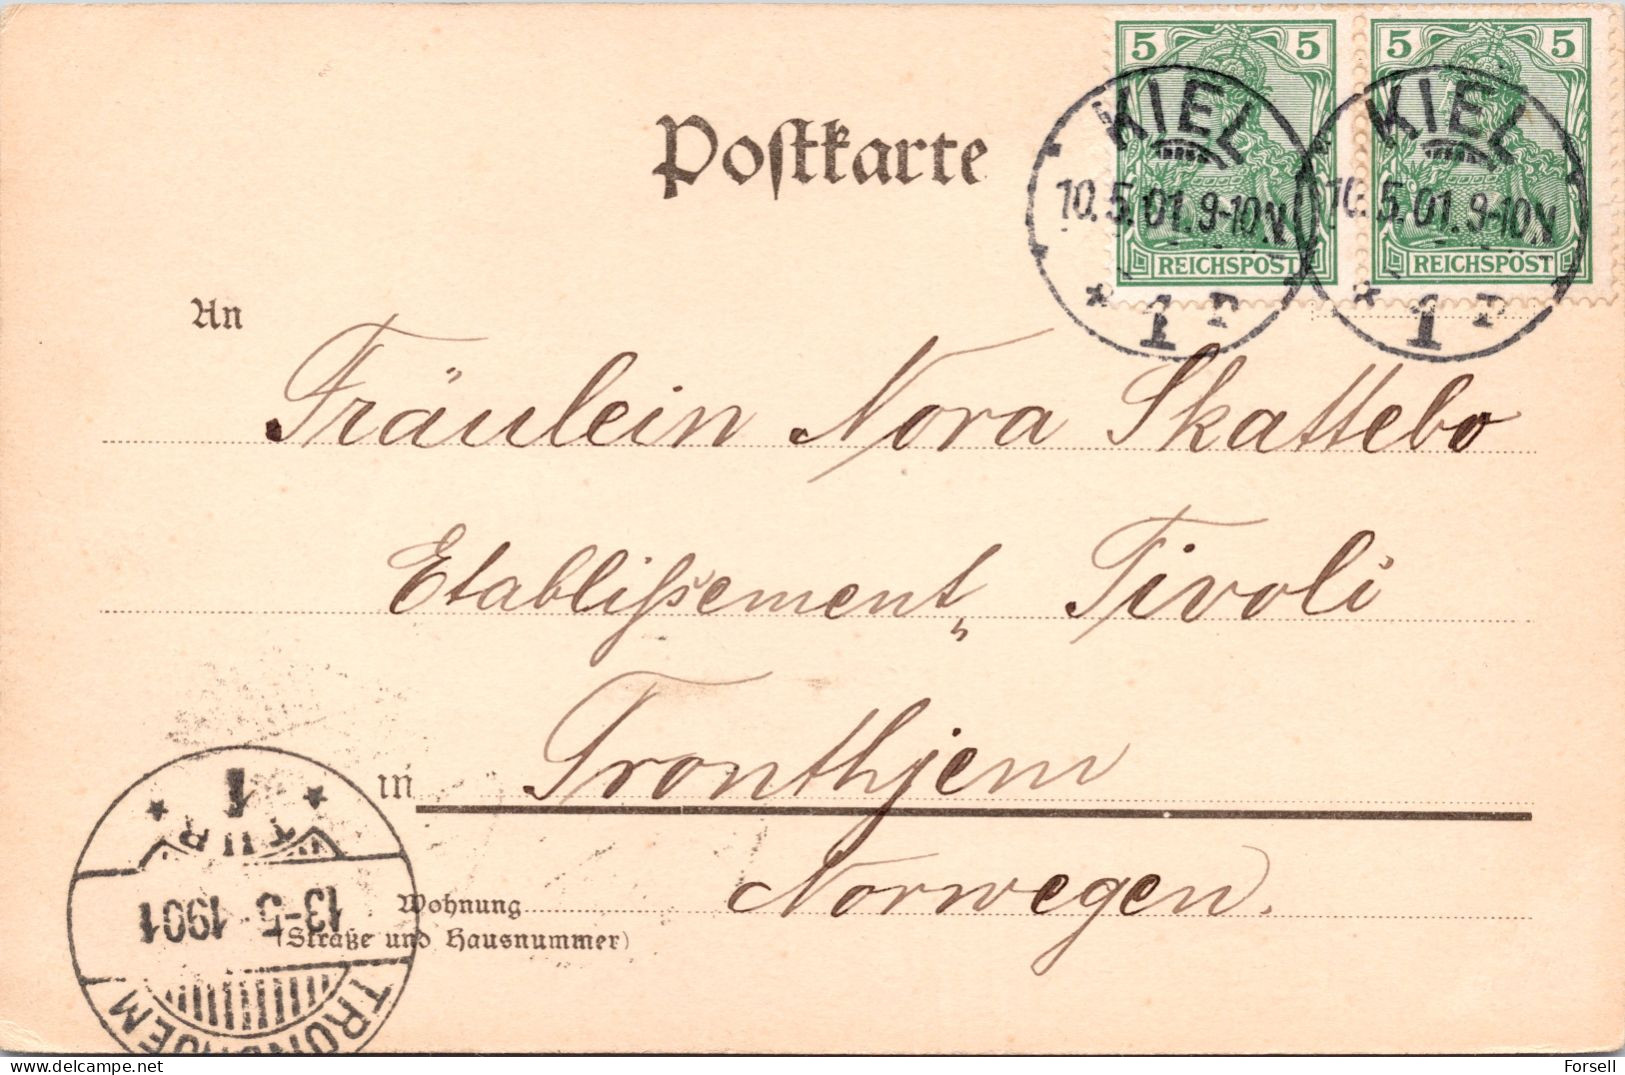 5 5 5 5
Postkarte
KIEL KIEL
10.5.01.9-10N 10.5.01.9-10N
REICHSPOST REICHSPOST
* 1 P * 1 P
An
Fräulein Nora Skattebo
Etablißsement „Tivoli
in Tronthjem
Norwegen.
Wohnung
(Straße und Hausnummer)
TRONDHJEM
13-5 1901
TUR
* 1 *
Forsell